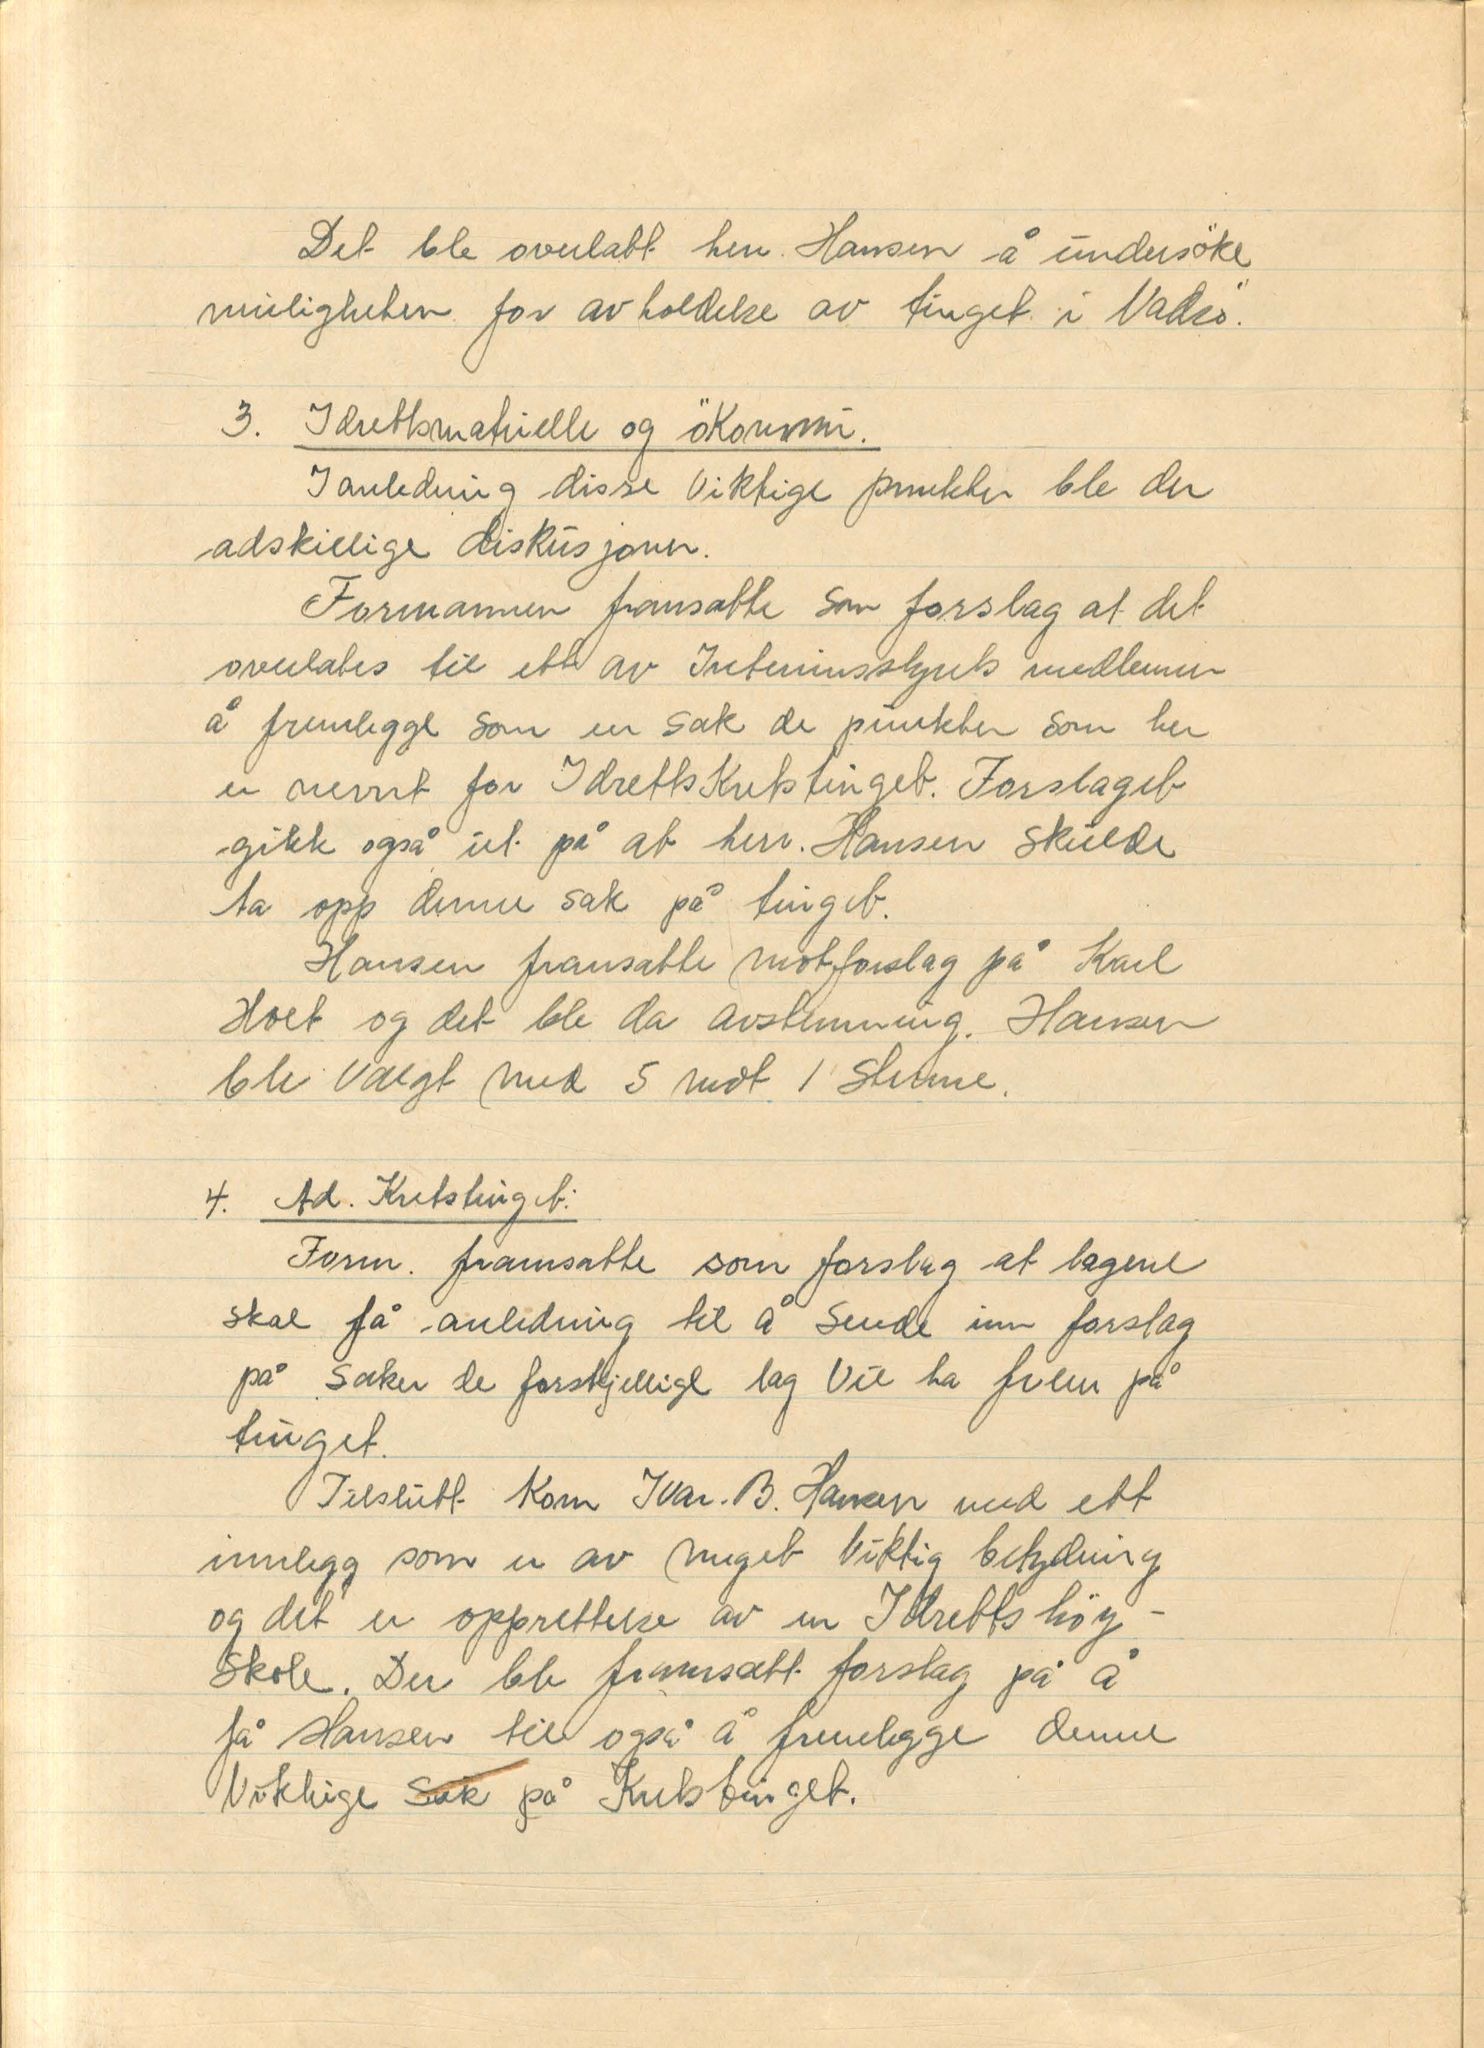 Det ble overlatt herr. Hansen å undersöke
muligheten for avholdelse av tinget i Vadsö.
3. Idrettsmatrielle og ökonomi.
I anledning disse viktige punkter ble der
adskillige diskusjoner.
Formannen framsatte som forslag at det
overlates til ett av Interimsstyrets medlemmer
å fremlegge som en sak de punkter som her
er nevnt for Idrettskretstinget. Forslaget
gikk også ut på at herr. Hansen skulde
ta opp denne sak på tinget.
Hansen framsatte motforslag på Karl
Holt og det ble da avstemning. Hansen
ble valgt med 5 mot 1 stemme.
4. Ad. Kretstinget:
Form. framsatte som forslag at lagene
skal få anledning til å sende inn forslag
på saker de forskjellige lag vil ha frem på
tinget.
Tilslutt kom Ivar. B. Hansen med ett
innlegg som er av meget viktig betydning
og det er opprettelse av en Idrettshöy-
skole. Der ble framsatt forslag på å
få Hansen til også å fremlegge denne
viktige sak på Kretstinget.